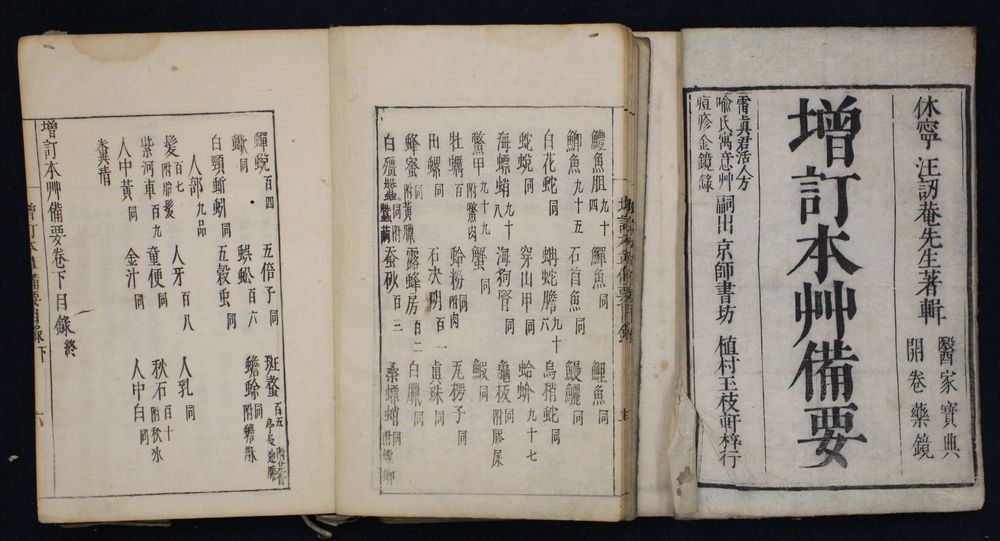 休寧 汪訒菴先生著輯
醫家寶典
開卷藥鏡
增訂本艸備要
雷真君活人方
喻氏寓意艸 嗣出 京師書坊 植村玉枝軒梓行
痘疹金鏡錄
鱧魚胆九十四 鱓魚同 鯉魚同
鯽魚九十五 石首魚同 鰻鱺同
白花蛇同 蚺蛇膽九十六 烏梢蛇同
蛇蜕同 穿山甲同 蛤蚧九十七
海螵蛸九十八 海狗腎同 龜板同附膠尿
鱉甲九十九附鱉肉 蟹同 鰕同
牡蠣百 蛤粉同附肉 瓦楞子同
田螺同 石决明百一 真珠同
蜂蜜同附黃臘 露蜂房百二 白臘同
白殭蠶同附 蚕砂百三 桑螵蛸同
蟬蜕百四 五倍子同 斑蝥百五
蠍同 蜈蚣百六 蟾蜍同附蟾酥
白頸蚯蚓同 五穀虫同
人部九品
髮百七附胎髮 人牙百八 人乳同
紫河車百九 童便同 秋石百十附秋冰
人中黃同 金汁同 人中白同
糞清
增訂本艸備要卷下目錄終